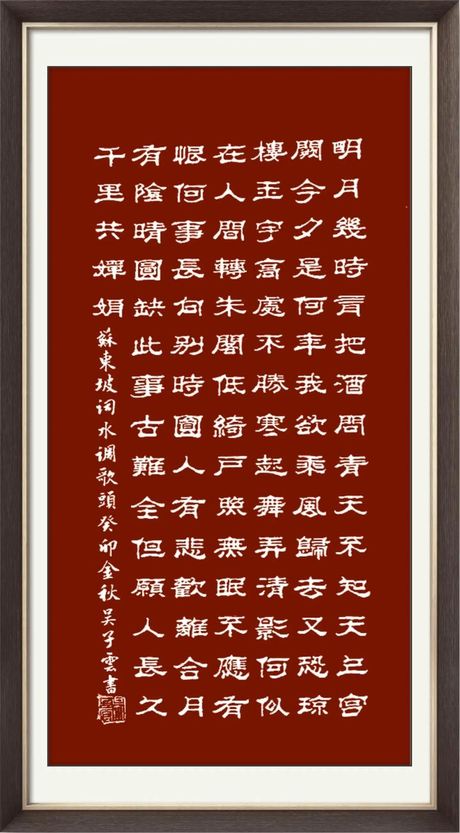 明月幾時有把酒問青天不知天上宫
闕今夕是何年我欲乘風歸去又恐琼
樓玉宇高處不勝寒起舞弄清影何似
在人間轉朱閣低綺户照無眠不應有
恨何事長向别時圓人有悲歡離合月
有陰晴圓缺此事古難全但願人長久
千里共嬋娟 蘇東坡词水调歌頭癸卯金秋吴子雲書